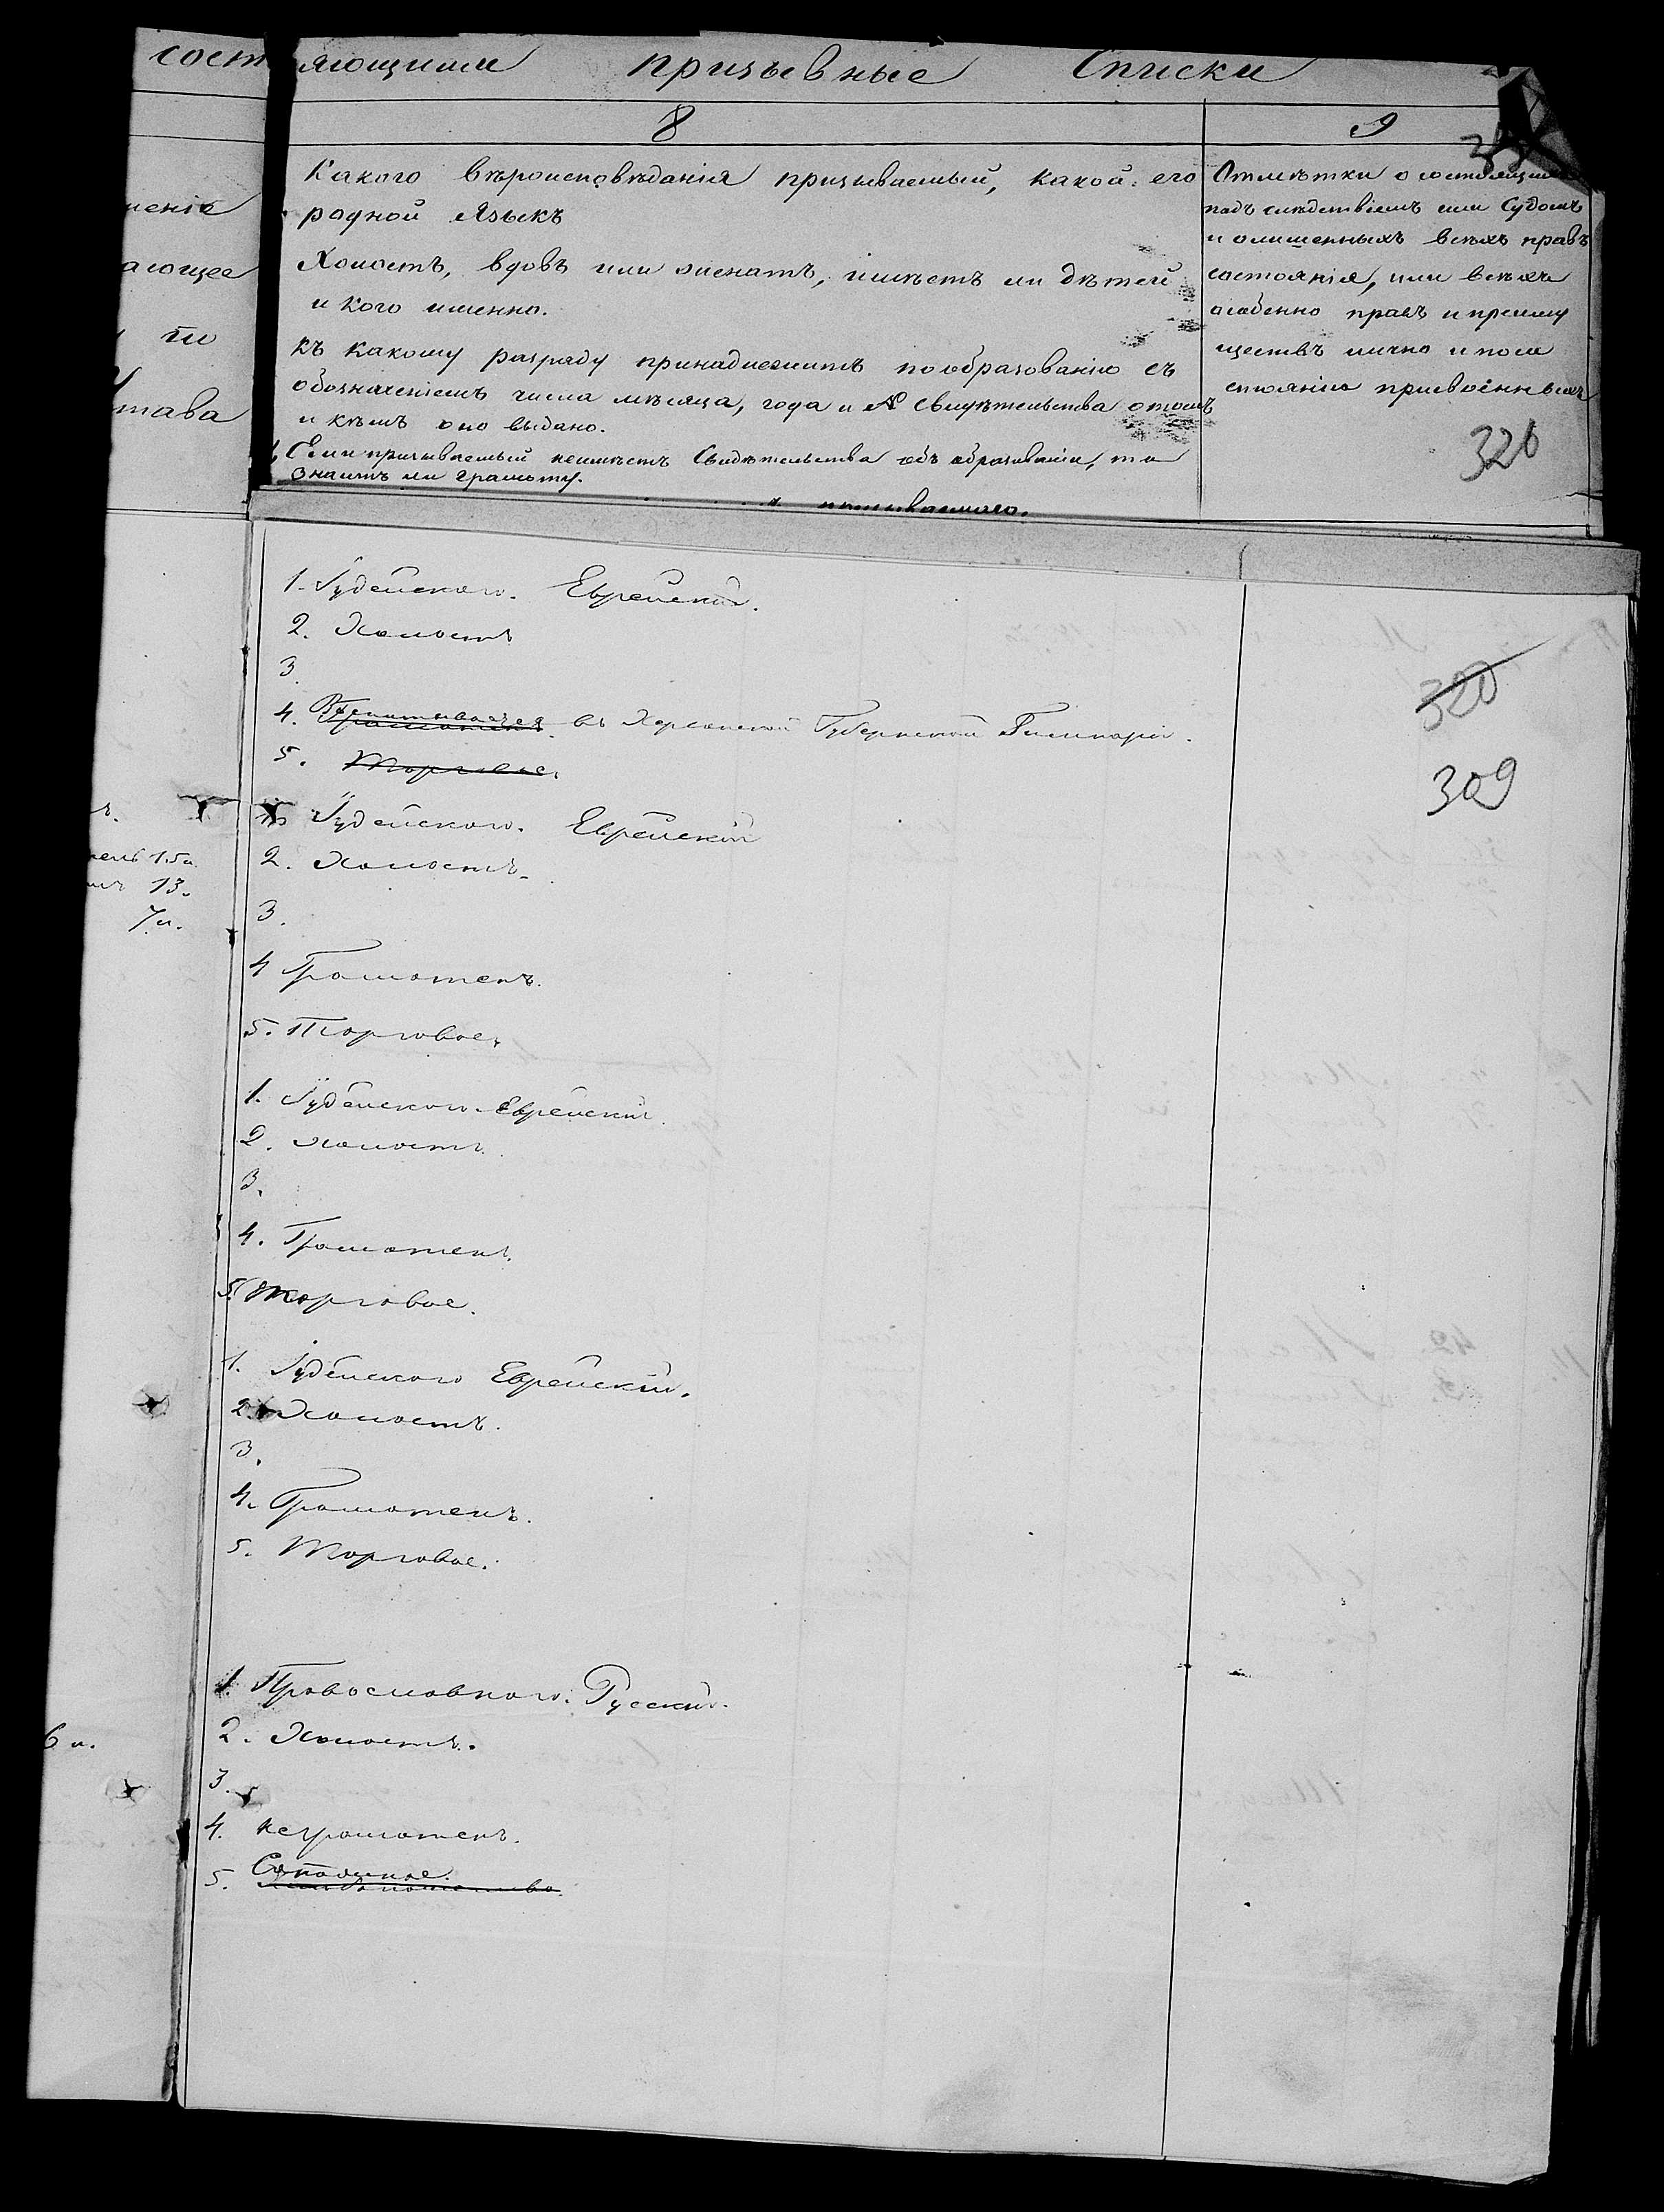 состоящими призывные Списки
8
9
Какого вѣроисповѣданія призываемый, какой его
родной языкъ
Холостъ, вдовъ или женатъ, имѣетъ ли дѣтей
и кого именно.
Къ какому разряду принадлежитъ по образованію съ
обозначеніемъ числа мѣсяца, года и № Свидѣтельства о томъ
и кѣмъ оно выдано.
Если призываемый неимѣетъ Свидѣтельства объ образованіи, то
знаетъ ли грамоту.
призываемаго.
Отмѣтки о состоящихъ
подъ слѣдствіемъ или Судомъ
и о лишенныхъ всѣхъ правъ
состоянія, или всѣхъ
особенно правъ и преиму
ществъ лично и по со
стоянію присвоенныхъ
320
енія
ающее
по
тава
1. Іудейскаго. Еврейскій.
2. Холостъ
3.
4. Воспитывается въ Херсонской Губернской Гимназіи.
5. Торговое.
320
309
1. Іудейскаго. Еврейскій
2. Холостъ.
3.
4 Грамотенъ.
5. Торговое.
15 л.
13.
7 л.
1. Іудейскаго. Еврейскій.
2. Холостъ.
3.
4. Грамотенъ.
5. Торговое.
1. Іудейскаго Еврейскій.
2. Холостъ.
3.
4. Грамотенъ.
5. Торговое.
1. Православнаго. Русскій.
2. Холостъ.
3.
4. Неграмотенъ.
5.
6 л.